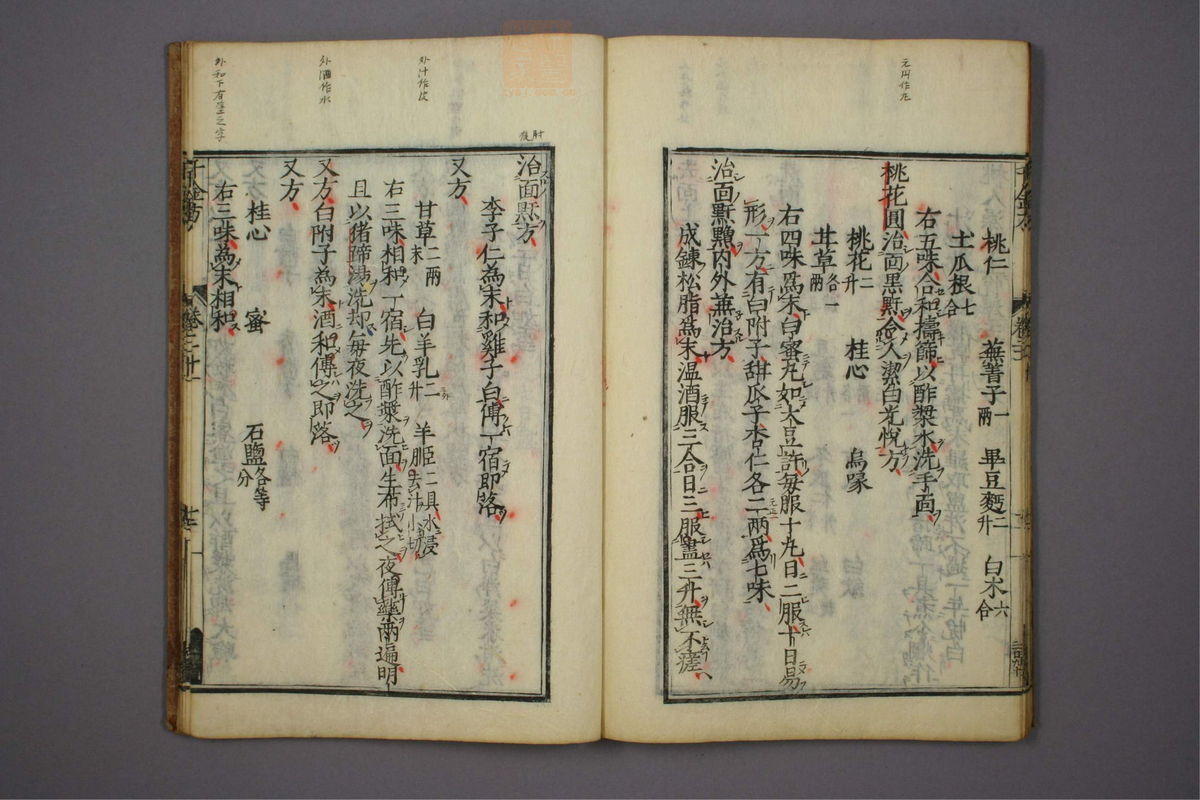 元丹作丸
桃仁 蕪菁子一兩 畢豆麪二升 白朮六合
土瓜根七合
右五味合和擣篩以酢漿水洗手面
桃花圓治面黑䵟令人潔白光悅方
桃花二升 桂心 烏喙
甘草各一兩
右四味爲末白蜜丸如大豆許每服十丸日二服十日易
形一方有白附子甜瓜子杏仁各二兩爲七味
治面䵟䵳內外兼治方
成鍊松脂爲末温酒服三合日三服盡三升無不瘥
肘後
治面䵟方
李子仁為末和雞子白傅一宿即落
外汁作皮
又方
甘草二兩末 白羊乳二升 羊胵二具水浸去汁小切
右三味相和一宿先以酢漿洗面生布拭之夜傅藥兩遍明
且以猪蹄湯洗却每夜洗之
外酒作水
又方白附子為末酒和傅之即落
又方
桂心 蜜 石鹽各等分
右三味為末相和
外和下有塗之字
千金方 卷二十一